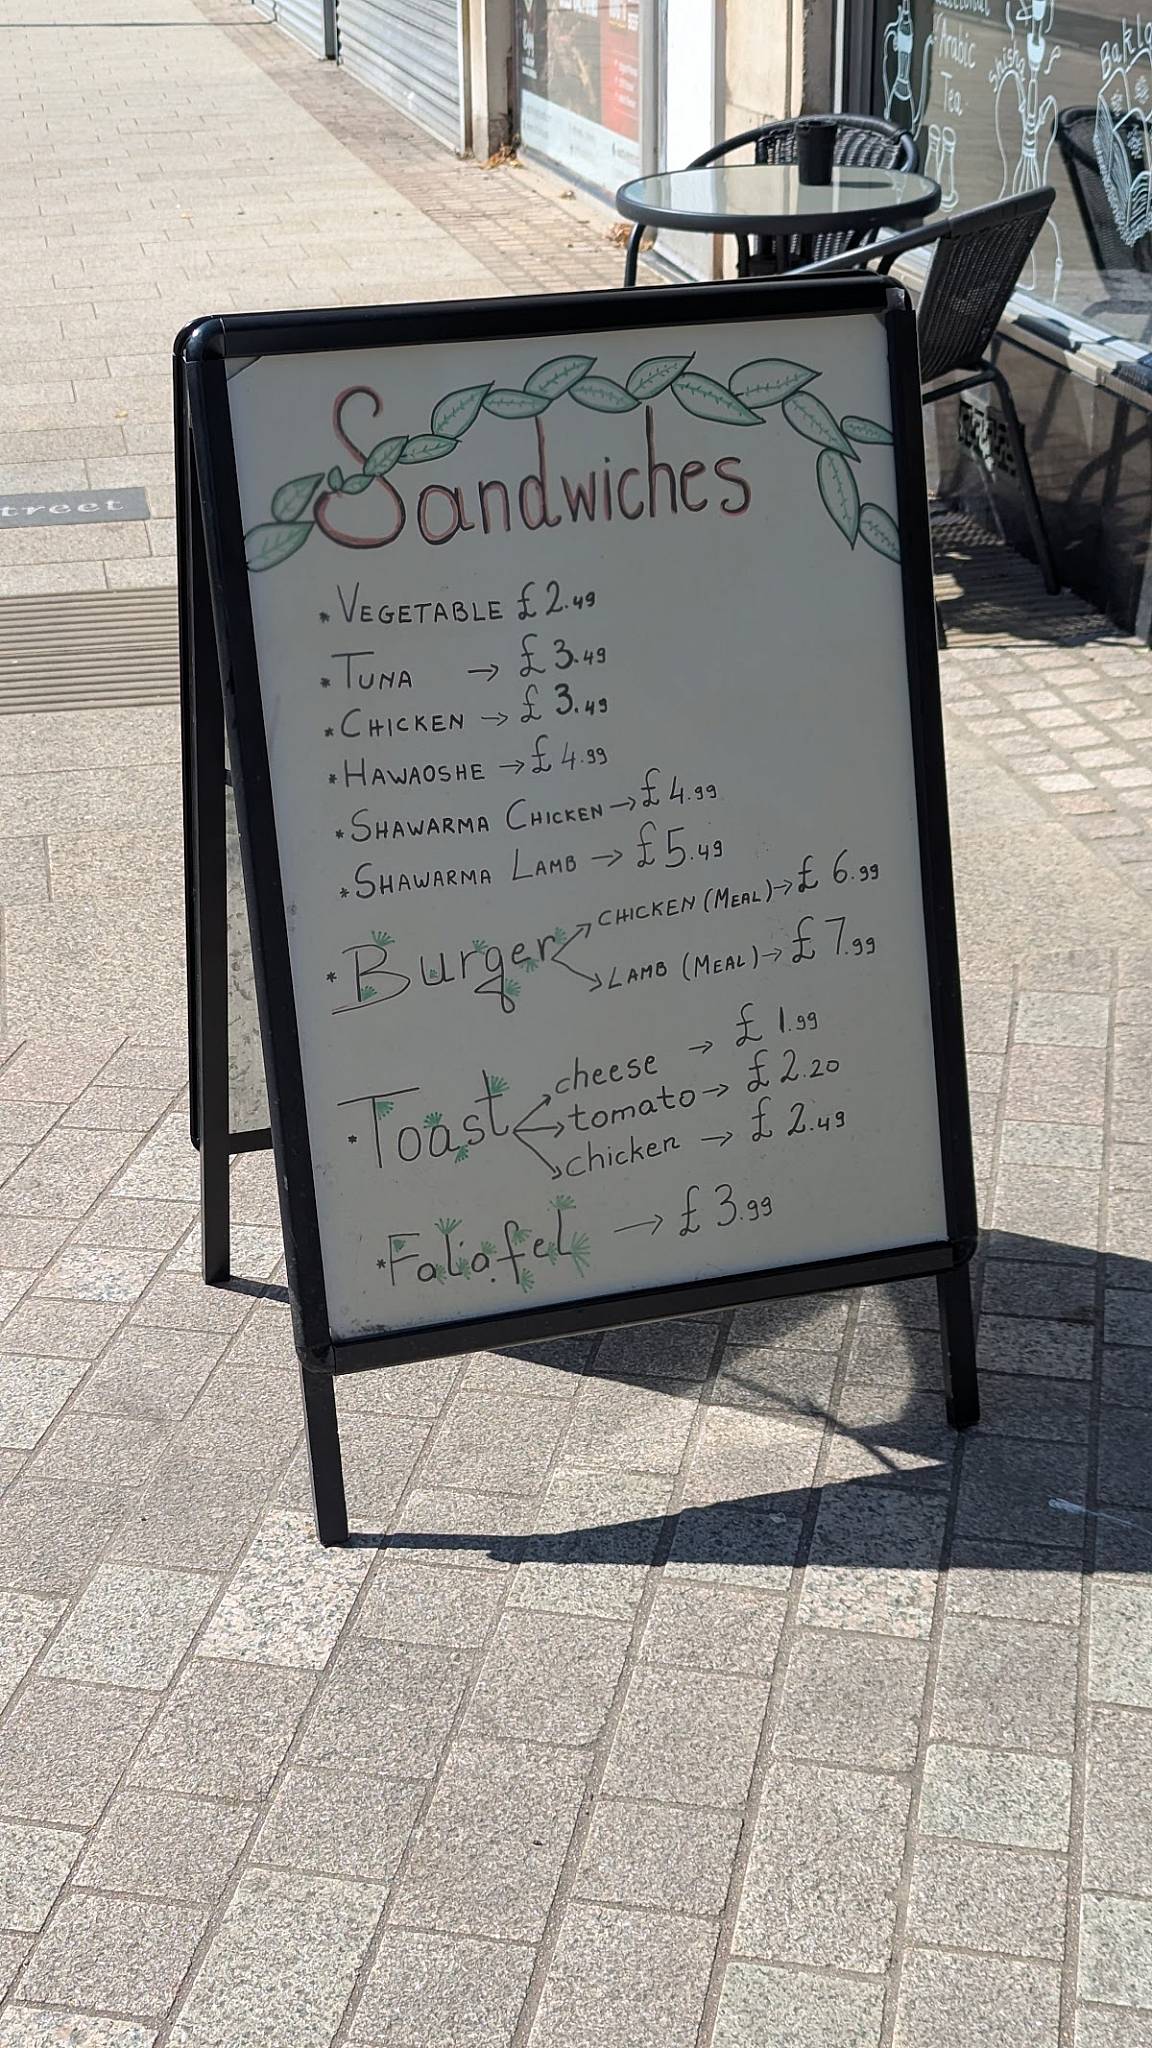 Arabic
Tea
shisha
treet
Sandwiches
* VEGETABLE £2.49
* TUNA → £3.49
* CHICKEN → £3.49
* HAWAOSHE → £4.99
* SHAWARMA CHICKEN → £4.99
* SHAWARMA LAMB → £5.49
* Burger
CHICKEN (MEAL) → £6.99
LAMB (MEAL) → £7.99
* Toast
cheese → £1.99
tomato → £2.20
chicken → £2.49
* Falafel → £3.99